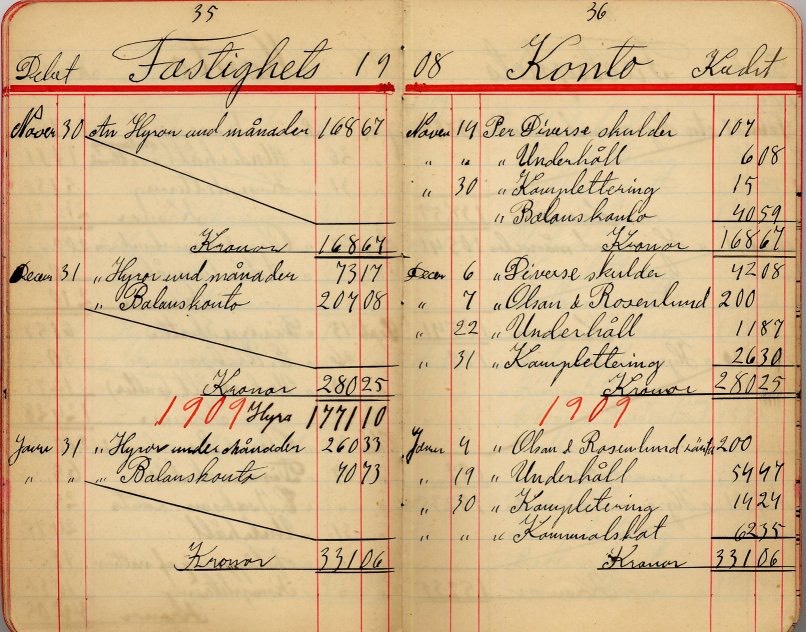 35
Debet Fastighets 19
Nover 30 An Hyror und månader 168 67
Kronor 168 67
Decer 31 " Hyror und månader 73 17
" Balanskonto 207 08
Kronor 280 25
1909 Hyra 1771 10
Janre 31 " Hyror under månader 260 33
" " " Balanskonto 70 73
Kronor 331 06
36
08 Konto Kredit
Nover 14 Per Diverse skulder 107
" " " Underhåll 6 08
" 30 " Komplettering 15
" Balanskonto 40 59
Kronor 168 67
Decer 6 " Diverse skulder 42 08
" 7 " Olsan & Rosenlund 200
" 22 " Underhåll 11 87
" 31 " Komplettering 26 30
Kronor 280 25
1909
Janre 4 " Olsan & Rosenlund ränta 200
" 19 " Underhåll 54 47
" 30 " Kompletering 14 24
" " " Kommunalskat 62 35
Kronor 331 06